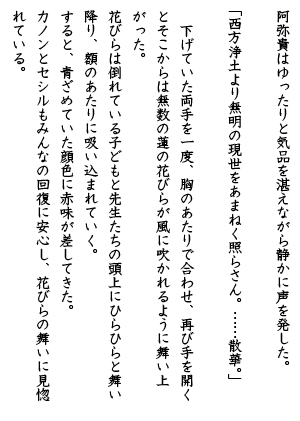 阿弥貴はゆったりと気品を湛えながら静かに声を発した。
「西方浄土より無明の現世をあまねく照らさん。……散華。」
　下げていた両手を一度、胸のあたりで合わせ、再び手を開く
とそこからは無数の蓮の花びらが風に吹かれるように舞い上
がった。
花びらは倒れている子どもと先生たちの頭上にひらひらと舞い
降り、額のあたりに吸い込まれていく。
すると、青ざめていた顔色に赤味が差してきた。
カノンとセシルもみんなの回復に安心し、花びらの舞いに見惚
れている。